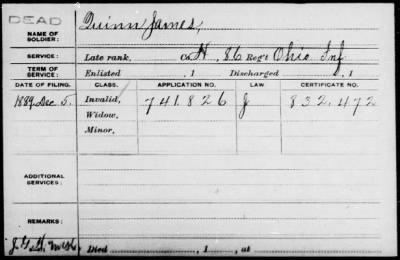 DEAD
NAME OF SOLDIER: Quinn James,
SERVICE: Late rank, Co. H, 86 Reg't Ohio Inf.
TERM OF SERVICE: Enlisted , 1 Discharged , 1
DATE OF FILING. CLASS. APPLICATION NO. LAW CERTIFICATE NO.
1889 Dec. 5. Invalid, 741.826 J 832.472
Widow,
Minor,
ADDITIONAL SERVICES:
REMARKS:
Died , 1 , at